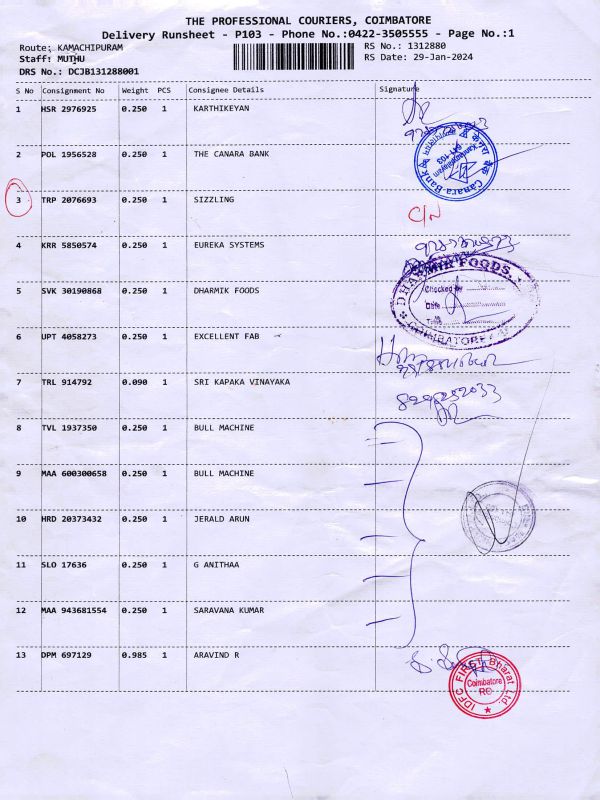 THE PROFESSIONAL COURIERS, COIMBATORE
Delivery Runsheet - P103 - Phone No.:0422-3505555 - Page No.:1
Route: KAMACHIPURAM RS No.: 1312880
Staff: MUTHU RS Date: 29-Jan-2024
DRS No.: DCJB131288001
S No Consignment No Weight PCS Consignee Details Signature
1 HSR 2976925 0.250 1 KARTHIKEYAN
2 POL 1956528 0.250 1 THE CANARA BANK
Canara Bank
641 103
3 TRP 2076693 0.250 1 SIZZLING C/N
4 KRR 5850574 0.250 1 EUREKA SYSTEMS
5 SVK 30190868 0.250 1 DHARMIK FOODS
DHARMIK FOODS
Checked by
Date
Time
6 UPT 4058273 0.250 1 EXCELLENT FAB
7 TRL 914792 0.090 1 SRI KAPAKA VINAYAKA
8 TVL 1937350 0.250 1 BULL MACHINE
9 MAA 600300658 0.250 1 BULL MACHINE
10 HRD 20373432 0.250 1 JERALD ARUN
11 SLO 17636 0.250 1 G ANITHAA
12 MAA 943681554 0.250 1 SARAVANA KUMAR
13 DPM 697129 0.985 1 ARAVIND R
IDFC FIRST Bharat Ltd.
Coimbatore
RO